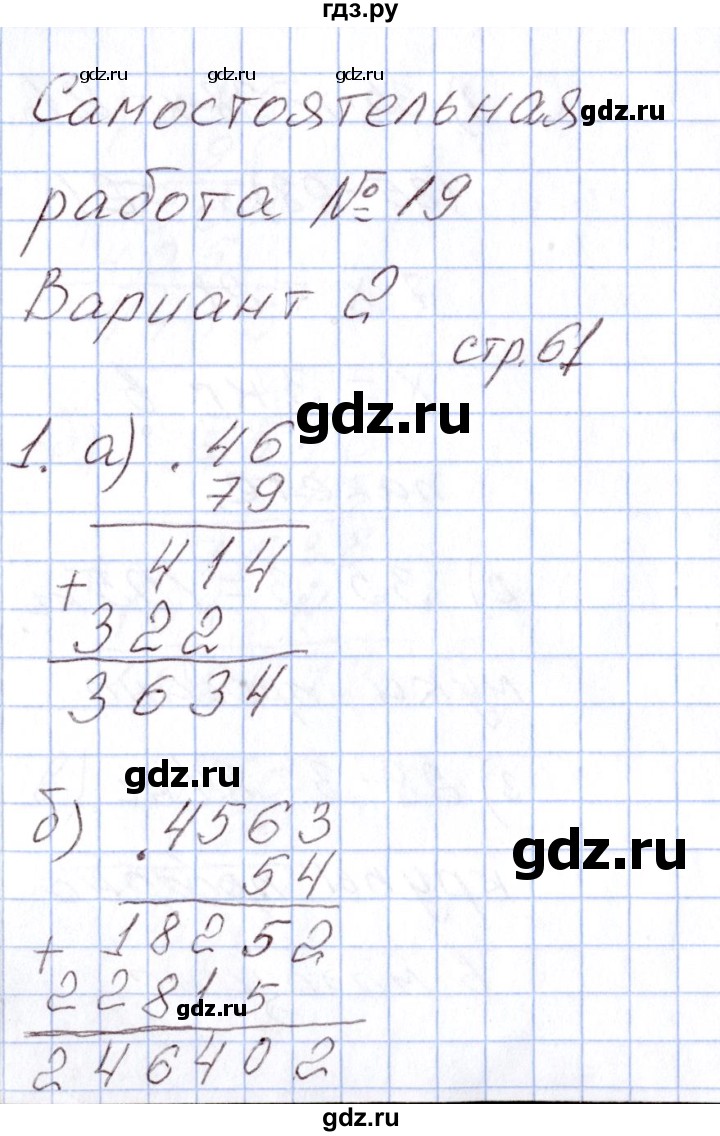 гдз.ру
gdz.ru gdz.ru gdz.ru
Самостоятельная
gdz.ru
работа № 19
Вариант 2
стр. 61
gdz.ru
1. а) . 46
79
414
+
322
3634
gdz.ru
б) . 4563
gdz.ru
54
18252
+
22815
gdz.ru
246402
gdz.ru